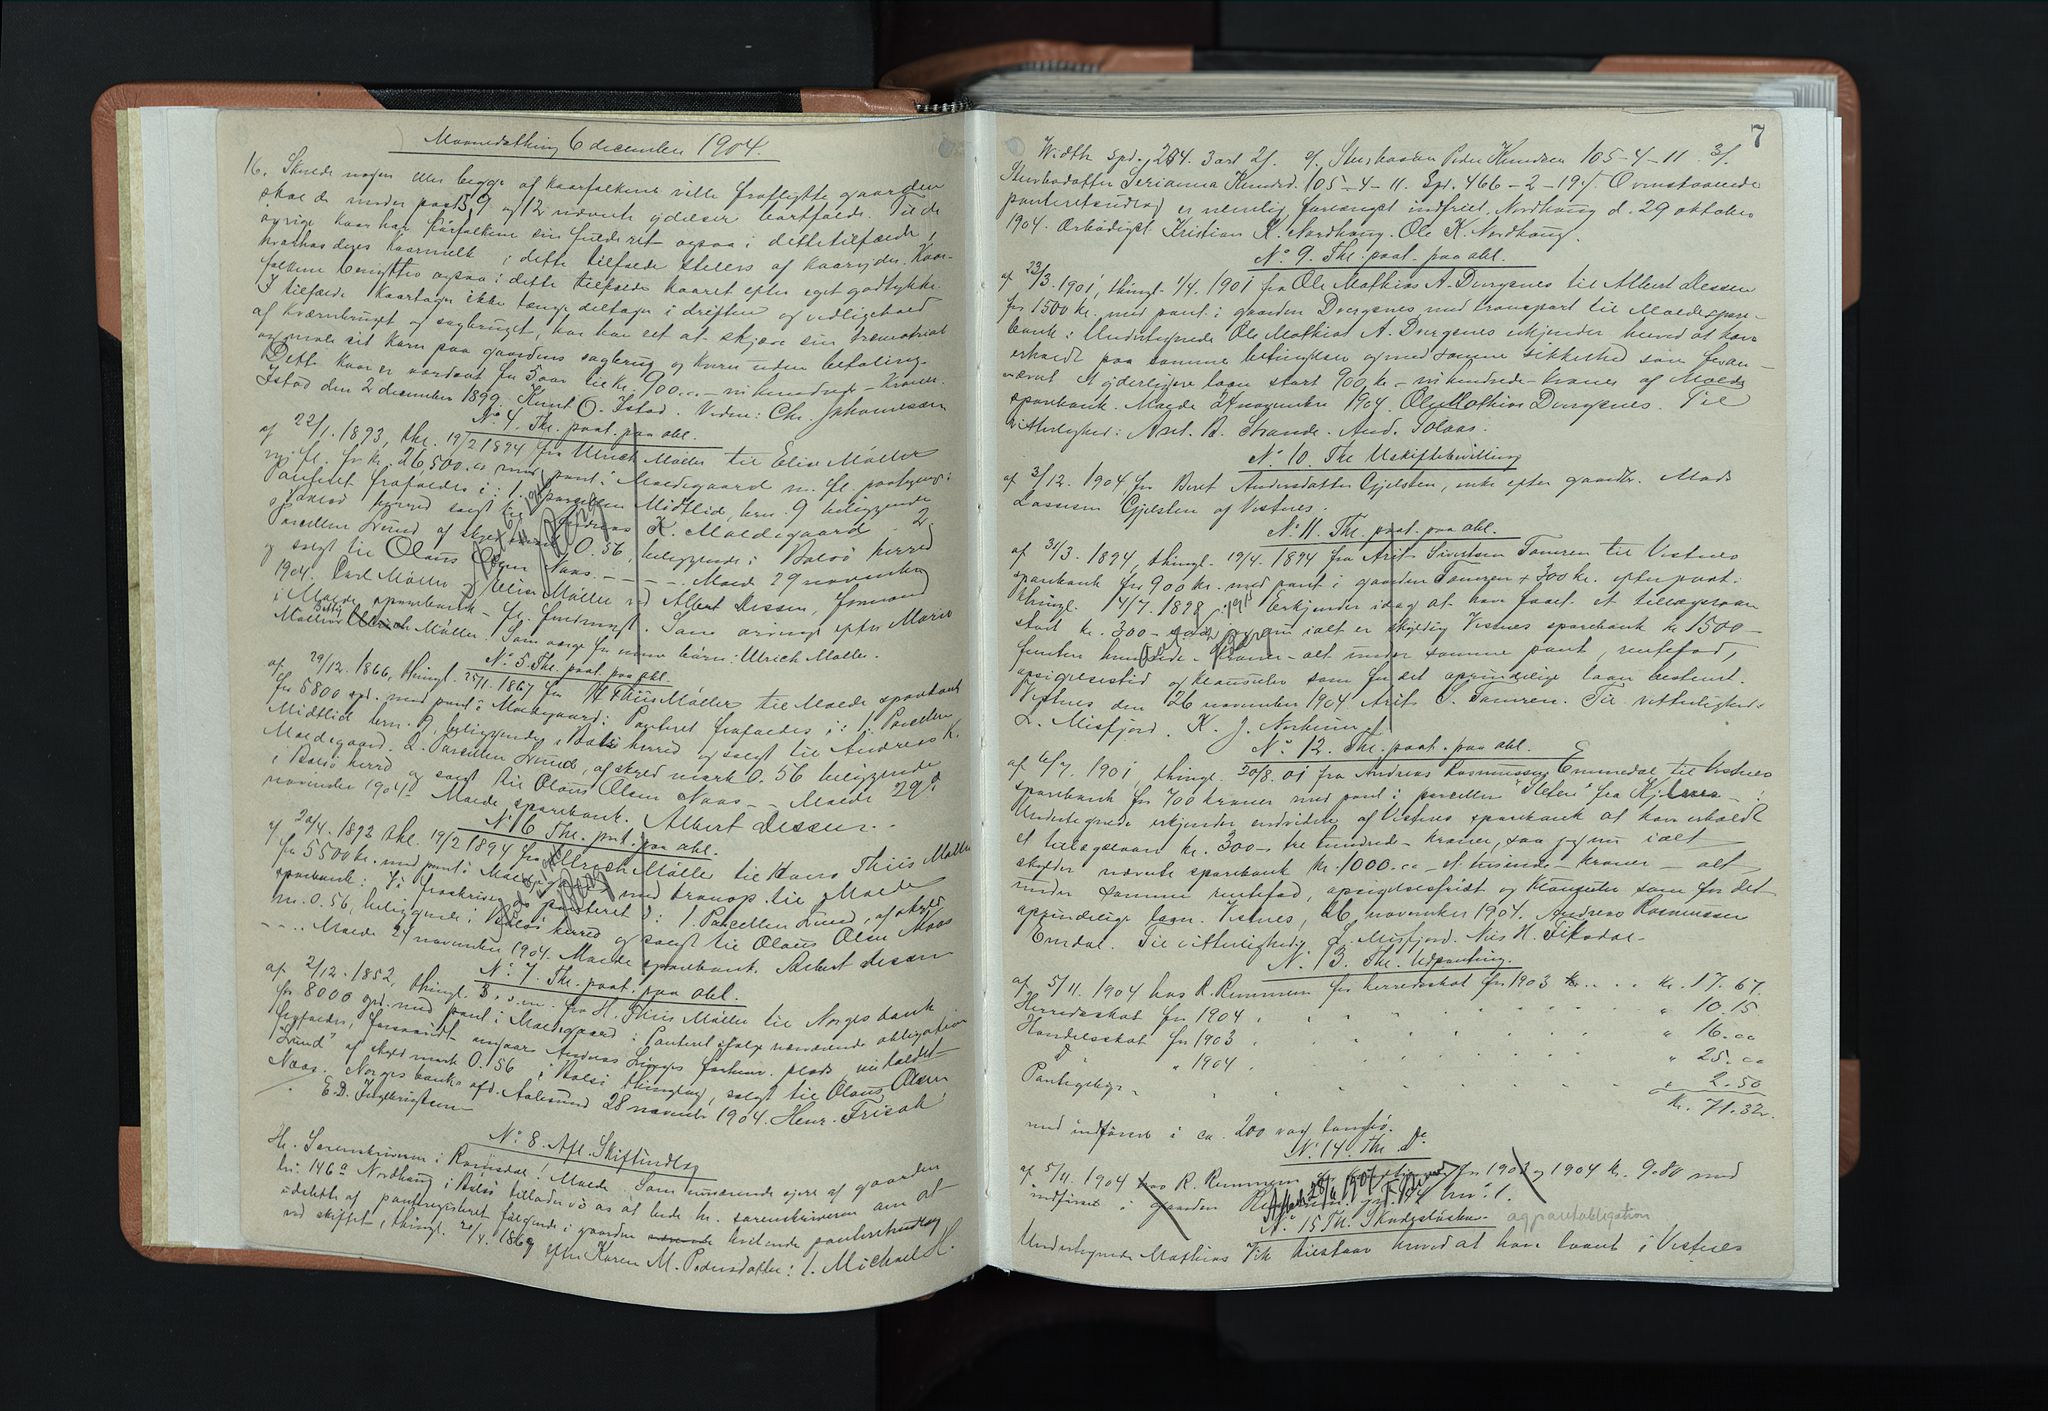 Maanedsthing 6 december 1904.
16. Skulde nogen eller begge af kaarfolkene ville fraflytte gaarden
skal de under post 5, 9 og 12 nævnte ydelser bortfalde. Til de
øvrige kaar har kaarfolkene sin fulde ret ogsaa i dette tilfælde,
hvorhos deres kaarmelk i dette tilfælde steles af kaaryder. Kaar-
folkene benyttes ogsaa i dette tilfælde kaaret efter eget godtykke.
I tilfælde kaartager ikke længe deltager i driften og vedligehold
af kværnbruget og sagbruget, har han ret at skjære sin træmateriat
og male sit korn paa gaardens sagbrug og kværn uden betaling.
Dette kaar er værdsat for 5 aar til kr. 900.- nihundrede - kroner.
Istad den 2 december 1899. Knut O. Istad. Vidne: Chr. Johannesen
No 4. Thl. paat. paa obl.
af 22/1. 1893, thl. 19/2 1894 fra Ulrich Møller til Elise Møller
m. fl. for kr. 26500.00 med pant i Moldegaard m. fl. paategning:
Panteret frafaldes i: 1. Parcellen Midtlid, brn. 9 beliggende
i herred solgt til Andreas K. Moldegaard. 2.
Parcellen Lund af skyld mark 0.56, beliggende i Bolsø herred
og solgt til Olaus Olsen Naas. - - - -. Molde 29 november
1904. Carl Møller og Elise Møller ved Albert Dessen, formand
i Molde sparebank - fl. fuldmagt. Som arving efter Marie
Møller: Betty Møller. Som værge for mine børn: Ulrich Møller.
No 5. Thl. paat. paa obl.
af 29/12. 1866, thingl. 25/1. 1867 fra H. Thiis Møller til Molde sparebank
for 5800 spd. med pant i Moldegaard: Panteret frafaldes i: 1. Parcellen
Midtlid brn. 9, beliggende i Bolsø herred og solgt til Andreas K.
Moldegaard. 2. Parcellen Lund, af skyld mark 0.56 beliggende
i Bolsø herred og solgt til Olaus Olsen Naas - - Molde 29de
november 1904. Molde sparebank. Albert Dessen.
No 6 Thl. paat. paa obl.
af 20/4. 1892 thl. 19/2 1894 fra Ulrich Møller til Hans Thiis Møller
for 5500 kr. med pant i Moldegaard med transp. til Molde
sparebank: Vi fraskriver os panteret i: 1. Parcellen Lund, af skyld
mr. 0.56, beliggende i Bolsø herred og solgt til Olaus Olsen Naas
- - . . Molde 29 november 1904. Molde sparebank. Albert Dessen
No 7. Thl. paat. paa obl.
af 2/12. 1852, thingl. 3. s. m. fra H. Thiis Møller til Norges bank
for 8000 spd. med pant i Moldegaard: Panteret ifølge nærværende obligation
frafaldes, forsaavidt angaar Andreas forhenv. plads, nu kaldet
"Lund" af skyld mark 0.56 i Bolsø thinglag, solgt til Olaus Olsen
Naas. Norges banks afd. Aalesund 28 november 1904. Henr. Frisak
E. D. Ingebrigtsen
No 8. Afl. Skifteudlæg
Hr. Sorenskriveren i Romsdal! Molde. Som nuværende ejere af gaarden
br. 146a Nordhaug i Bolsø tillader vi os at bede hr. sorenskriveren om at
udslette af panteregisteret følgende i gaarden hvilende panteretsudlæg
ved skiftet, thingl. 20/4. 1869 efter Karen M. Pedersdatter: 1. Michael H.
7
Width Spd. 264. 3 ort 2 s. 2/. Stervbosøn Peder Knudsen 105-4-11 3/.
Stervbodatter Serianna Knudsd. 105-4-11. Spd. 466-2-19 s. Ovenstaaende
panteretsudlæg er nemlig forlængst indfriet. Nordhaug d. 29 oktober
1904. Ærbødigst Kristian K. Nordhaug. Ole K. Nordhaug.
No 9. Thl. paat. paa obl.
af 23/3. 1901, thingl. 1/4. 1901 fra Ole Mathias A. Dvergsnes til Albert Dessen
for 1500 kr. med pant i gaarden Dvergsnes med transport til Molde spare-
bank: Undertegnede Ole Mathias A. Dvergsnes erkjender herved at have
erholdt paa samme betingelser og med samme sikkerhed som foran-
nævnt et yderligere laan stort 900 kr. - nihundrede - kroner af Molde
sparebank. Molde 24 november 1904. Ole Mathias Dvergsnes. Til
vitterlighed: Axel. B. Strande. And. Solaas.
No 10. Thl. Uskiftebevilling
af 3/12. 1904 for Beret Andersdatter Gjelsten, enke efter gaardbr. Mads
Lassesen Gjelsten af Vestnes.
No 11. Thl. paat. paa obl.
af 31/3. 1894, thingl. 19/4. 1894 fra Arit Sivertsen Tomren til Vestnes
sparebank for 900 kr. med pant i gaarden Tomren + 300 kr. efter paat.
thingl. 14/7. 1898: Erkjender idag at have faaet et tillægslaan
stort kr. 300 - saa jeg nu ialt er skyldig Vestnes sparebank kr 1500 -
femten hundrede - kroner - alt under samme pant, rentefod,
opsigelsestid og klausuler som for det oprindelige laan bestemt.
Vestnes den 26 november 1904 Arit S. Tomren. Til vitterlighed:
L. Misfjord. K. J. Norheim.
No 12. Thl. paat. paa obl.
af 6/7. 1901, thingl. 20/8. 01 fra Andreas Rasmussen Emmedal til Vestnes
sparebank for 700 kroner med pant i parcellen "Sletten" fra Kjelnes - :
Undertegnede erkjender endvidere af Vestnes sparebank at have erholdt
et tillægslaan kr. 300 - tre hundrede - kroner, saa jeg nu ialt
skylder nævnte sparebank kr. 1000.00 - et tusinde - kroner - alt
under samme rentefod, opsigelsesfrist og klausuler som for det
oprindelige laan. Vestnes, 26 november 1904. Andreas Rasmussen
Emdal. Til vitterlighed: L. Misfjord. Nils H. Fiksdal.
No 13. Thl. Udpanting.
af 5/11. 1904 hos R. Remmem for herredsskat for 1903 . . . kr. 17.67.
Herredsskat for 1904 " 10.15
Handelsskat for 1903 " 16.00
Do " 1904 " 25.00
Pantegebyr. " 2.50
kr. 71.32.
med indførsel i ca. 200 vog langhø.
No 14. Thl Do
af 5/11. 1904 hos R. Remmem for 1903 og 1904 kr. 9.80 med
indførsel i gaarden gr. br. 1.
No 15 Thl. Skadesløsbrev. og pantobligation
Undertegnede Mathias Vik tilstaar herved at have laant i Vestnes